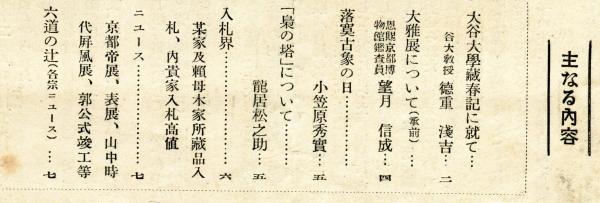 主なる内容
大谷大學藏春記に就て…
谷大教授 德重 淺吉… 二
大雅展について(承前)…
恩賜京都博物館鑑査員 望月 信成… 四
落寞古象の日……………
小笠原秀實… 五
「梟の塔」について………
龍居松之助… 五
入札界……………… 六
某家及賴母木家所藏品入
札、内貴家入札高値
ニュース……………… 七
京都帝展、表展、山中時
代屏風展、郭公式竣工等
六道の辻(各宗ニュース)… 七